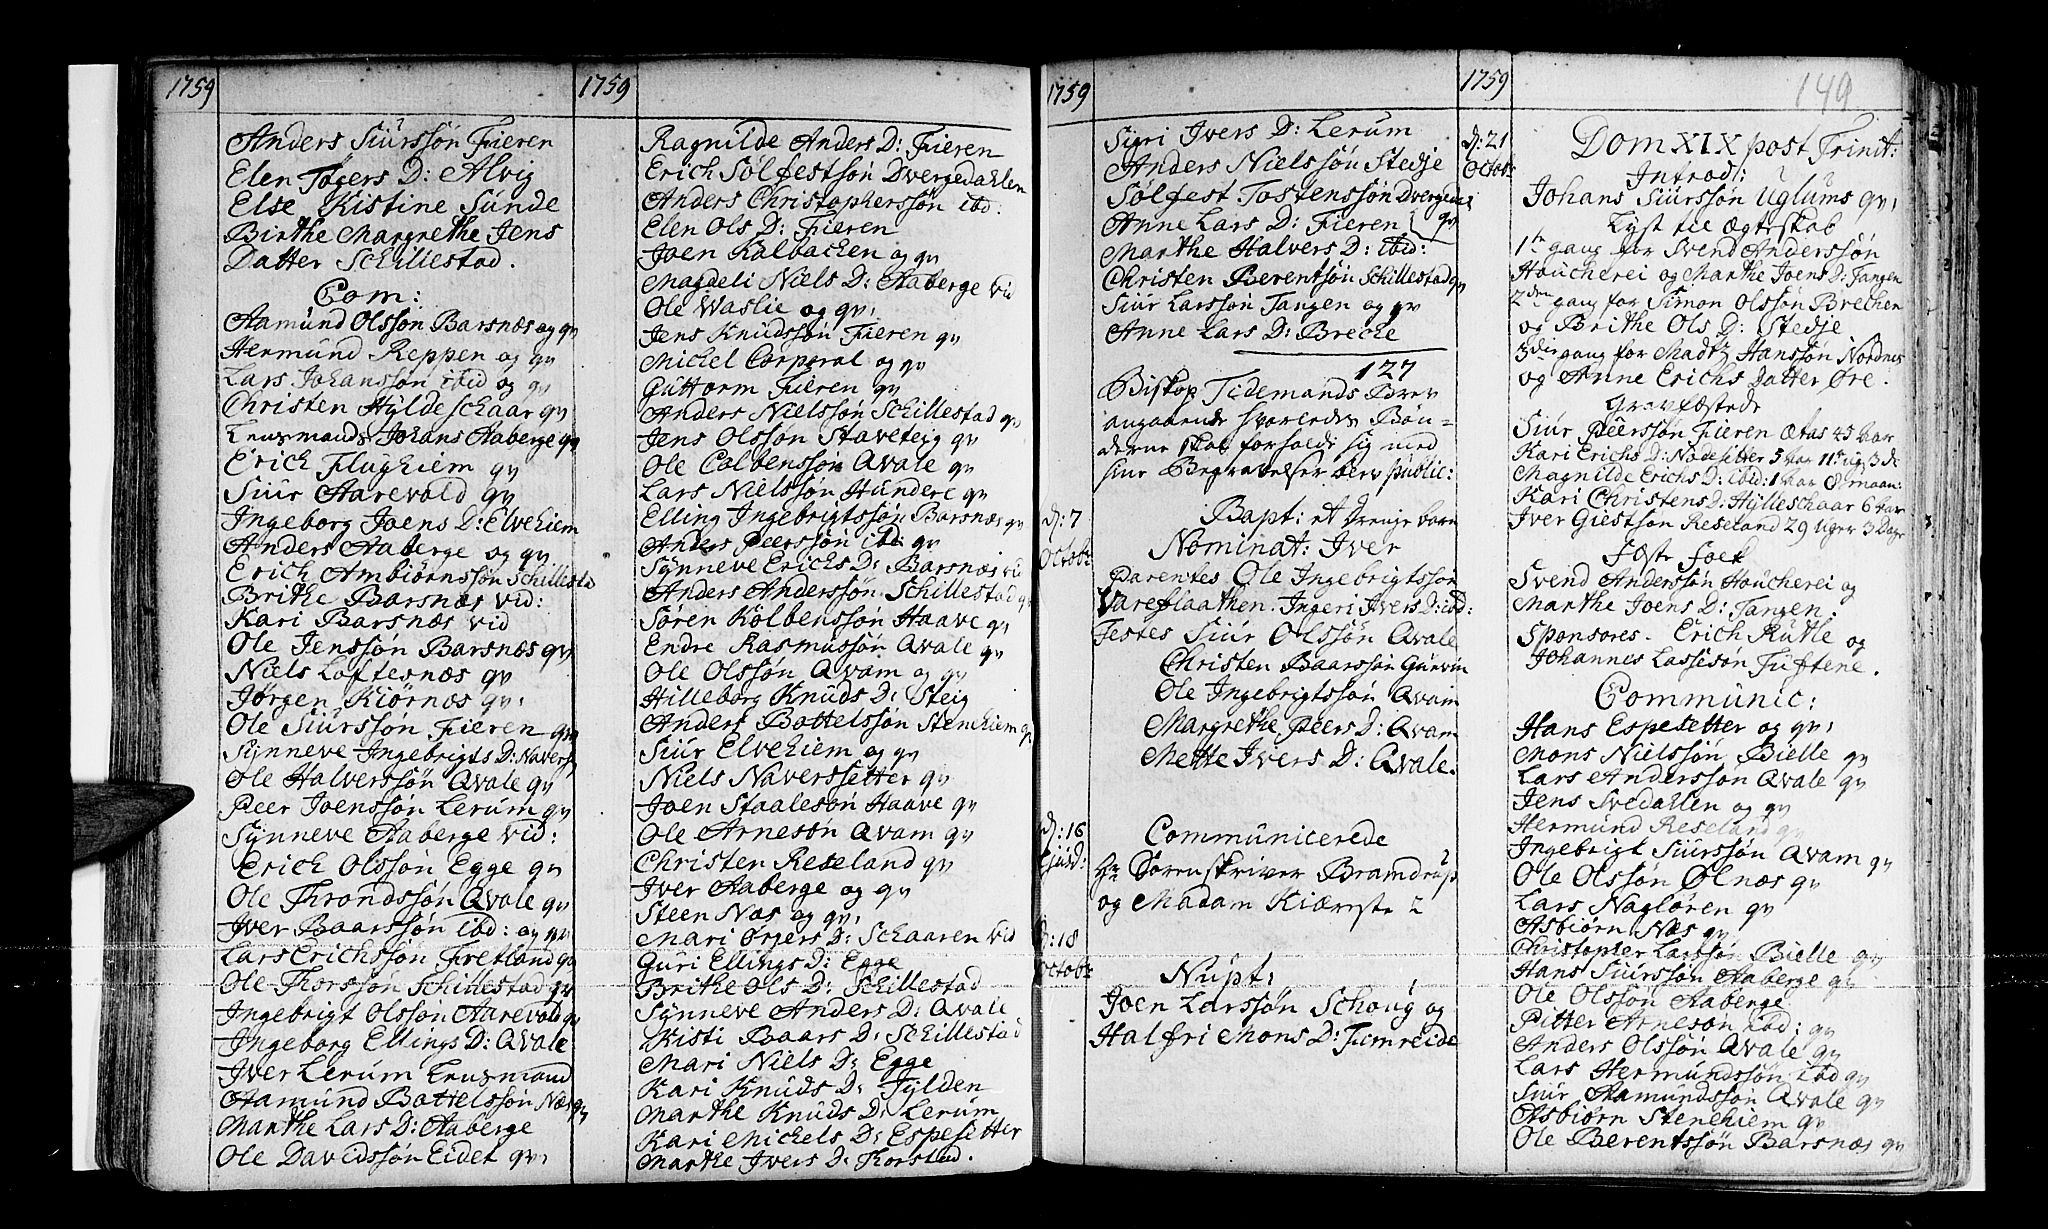 1759
Anders Siúrssøn Fieren
Elen Tøgers D: Alvig
Else Kistine Súnde
Birthe Margrethe Jens
Datter Schillestad.
Com:
Aamúnd Olssøn Barsnæs og qv
Hermúnd Reppen og qv
Lars Johanssøn ibid og qv
Christen Hÿldeschaar qv
Lensmands Johans Aaberge qv
Erich Flugheim qv
Siúr Aarevold qv
Ingeborg Joens D: Elvehiem
Anders Aaberge og qv
Erich Ambiørnssøn Schillestd
Brithe Barsnæs vid:
Kari Barsnæs vid
Ole Jenssøn Barsnæs qv
Niels Loftesnæs qv
Jørgen Kiørnæs qv:
Ole Siúrssøn Fieren qv
Sÿnneve Ingebrigts D: Navers
Ole Halverssøn Qvale qv
Peer Joenssøn Lerúm qv
Sÿnneve Aaberge vid:
Erich Olssøn Egge qv
Ole Throndssøn Qvale qv
Iver Baarssøn ibd: og qv
Lars Erichssøn Fretland qv
Ole Thorssøn Schillestad qv
Ingebrigt Olssøn Aarevold qv
Ingeborg Ellings D: Qvale
Iver Lerúm Lensmand
Aamúnd Bottelssøn Næs qv
Marthe Lars D: Aaberge
Ole Davidssøn Eidet qv:
1759
Ragnilde Anders D: Fieren
Erich Sølfestsøn Dvergedahlen
Anders Christopherssøn ibd:
Elen Ols D: Fieren
Joen Kalbachen og qv
Magdeli Niels D: Aaberge vid
Ole Waslie og qv:
Jens Knúdssøn Fieren qv
Michel Corporal og qv
Gúttorm Fieren qv
Anders Nielssøn Schillestad qv
Jens Olssøn Staveteig qv
Ole Colbenssøn Qvale qv
Lars Nielssøn Húndere qv
Elling Ingebrigtssøn Barsnæs qv
Anders Peerssøn ibd: qv
Sÿnneve Erichs D: Barsnæs vid
Anders Anderssøn Schillestad qv
Søren Kolbenssøn Haave qv
Endre Rasmússøn Qvale qv
Ole Olssøn Qvam og qv
Hilleborg Knúds D: Steig
Anders Bottelssøn Stenehiem qv
Siúr Elvehiem og qv
Niels Naverssetter qv
Joen Staalesøn Haave qv
Ole Arnesøn Qvam qv
Christen Reseland qv
Iver Aaberge og qv
Steen Næs og qv:
Mari Ørgers D: Schaaren vid
Gúri Ellings D: Egge
Brithe Ols D: Schillestad
Sÿnneve Anders D: Qvale
Kisti Baars D: Schillestad
Mari Niels D: Egge
Kari Knúds D: Fÿlden
Marthe Knúds D: Lerúm
Kari Michels D: Espesetter
Marthe Ivers D: Thorstad.
1759
Sigri Ivers D: Lerúm
Anders Nielssøn Stedje
Sølfest Tostenssøn Dvergeda:
Anne Lars D: Fieren qv
Marthe Halvers D: ibid:
Christen Berentsøn Schillestad qv
Siúr Larssøn Tangen og qv
Anne Lars D: Breche
127
Biskop Tidemands Brev
angaaende hvorledes Bøn-
derne skal forholde sig med
sine Begravelser blev públic:
d: 7
Octobr
Bapt: et Drenge barn
Nominat: Iver
Parentes Ole Ingebrigtssøn
Vareflaathen. Ingeri Ivers D: ibd:
Testes Siúr Olssøn Qvale
Christen Baarssøn Gúnvin
Ole Ingebrigtssøn Qvam
Margrethe Peers D: Qvam
Mette Ivers D: Qvale.
d: 16
Communicerede
Hr Sorenskriver Bramdrúp
og Madam Kiærnste 2
d: 18
Octobr
Núpt:
Joen Larssøn Schoúg og
Halfri Mons D: Fimreide
1759
149
d: 21
Octobr
Dom XIX post Trinit:
Introd:
Johans Siúrssøn Uglúms qv:
Lyst til Ægteskab
1te gang for Svend Anderssøn
Houcherei og Marthe Joens D: Tangen
2den gang for Simon Olssøn Brechen
og Brithe Ols D: Stedje
3die gang for Madtz Hanssøn Nordnes
og Anne Erichs Datter Øre.
Gravfæstede
Siúr Peerssøn Fieren Ætas 45 aar
Kari Erichs D: Nadesetter 5 aar 11 ug: 3 d:
Magnilde Erichs D: ibid: 1 aar 8 maan:
Kari Christens D: Hÿlleschaar 6 aar
Iver Giestsøn Reseland 29 Uger 3 Dage
Feste folk
Svend Anderssøn Houcherei og
Marthe Joens D: Tangen.
Sponsores. Erich Rútle og
Johannes Lassesøn Túftene.
Commúnic:
Hans Espesetter og qv:
Mons Nielssøn Bielle qv
Lars Anderssøn Qvale qv
Jens Svedahlen og qv
Hermúnd Reseland qv
Ingebrigt Siúrssøn Qvam qv
Ole Olssøn Ølnæs qv
Lars Nagløren qv
Asbiørn Næs qv
Christopher Larssøn Bielle qv
Hans Siúrssøn Aaberge qv
Ole Olssøn Aaberge
Pitter Arnesøn ibd: qv
Anders Olssøn Qvale qv
Lars Hermúndssøn ibd qv
Siúr Aamúndssøn Qvale qv
Asbiørn Stenehiem qv
Ole Berentssøn Barsnæs qv